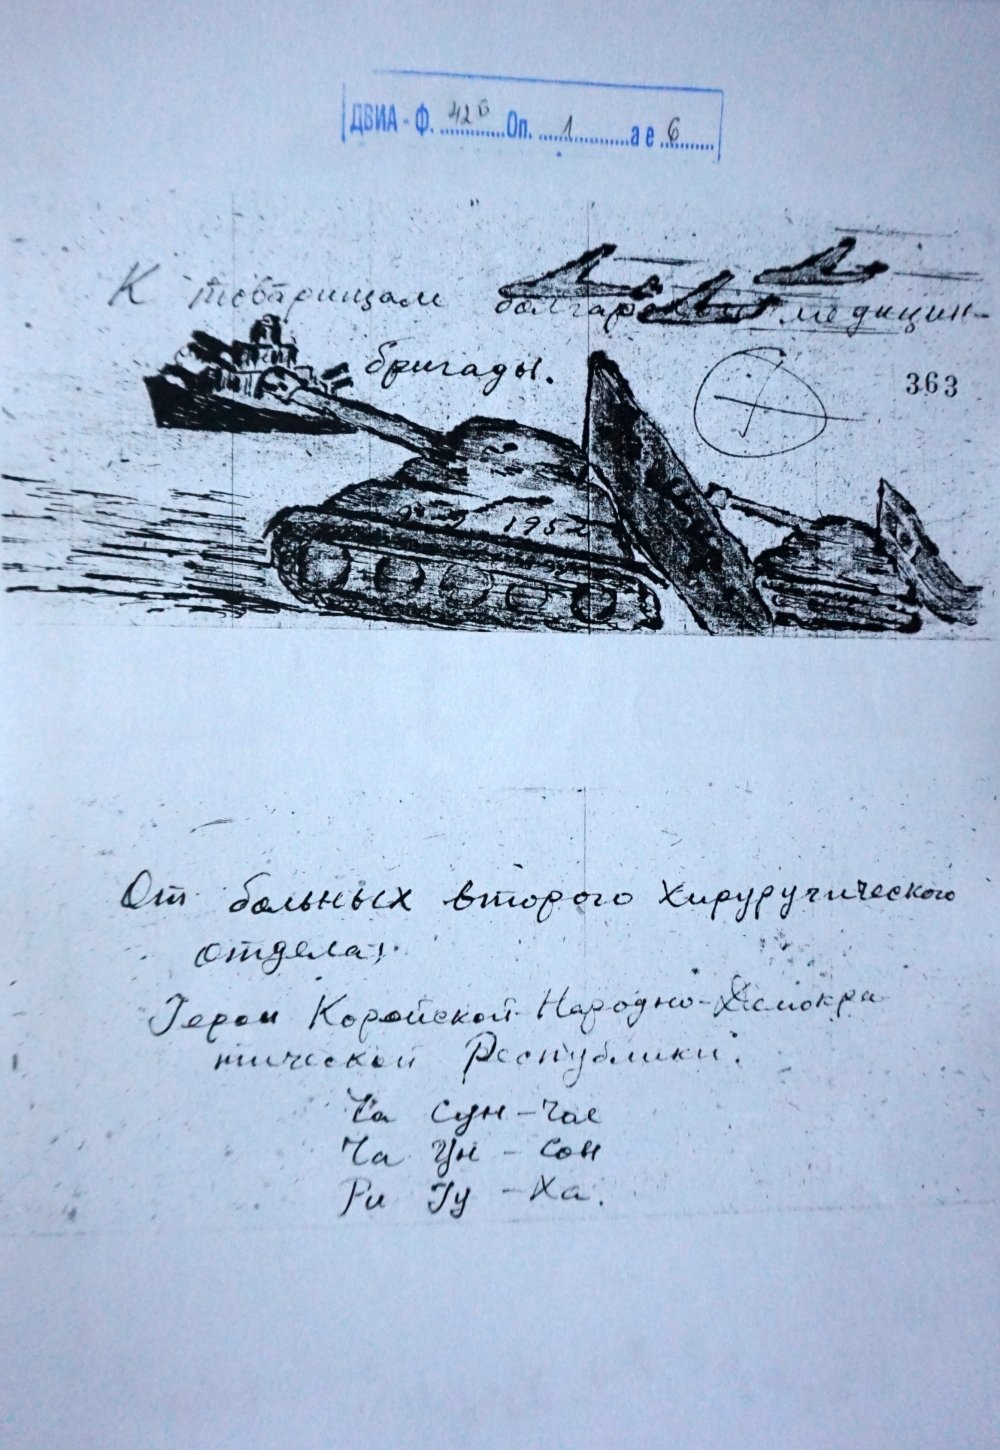 ДВИА - Ф. 42В Оп. 1 а е 6
К товарищам болгарской медицин-
бригады.
363
1952
От больных второго хируручического
отдела:
Герои Корейской Народно-Демокра
тической Республики.
Ча Сун-Чае
Ча Ун-Сон
Ри Гу-Ха.